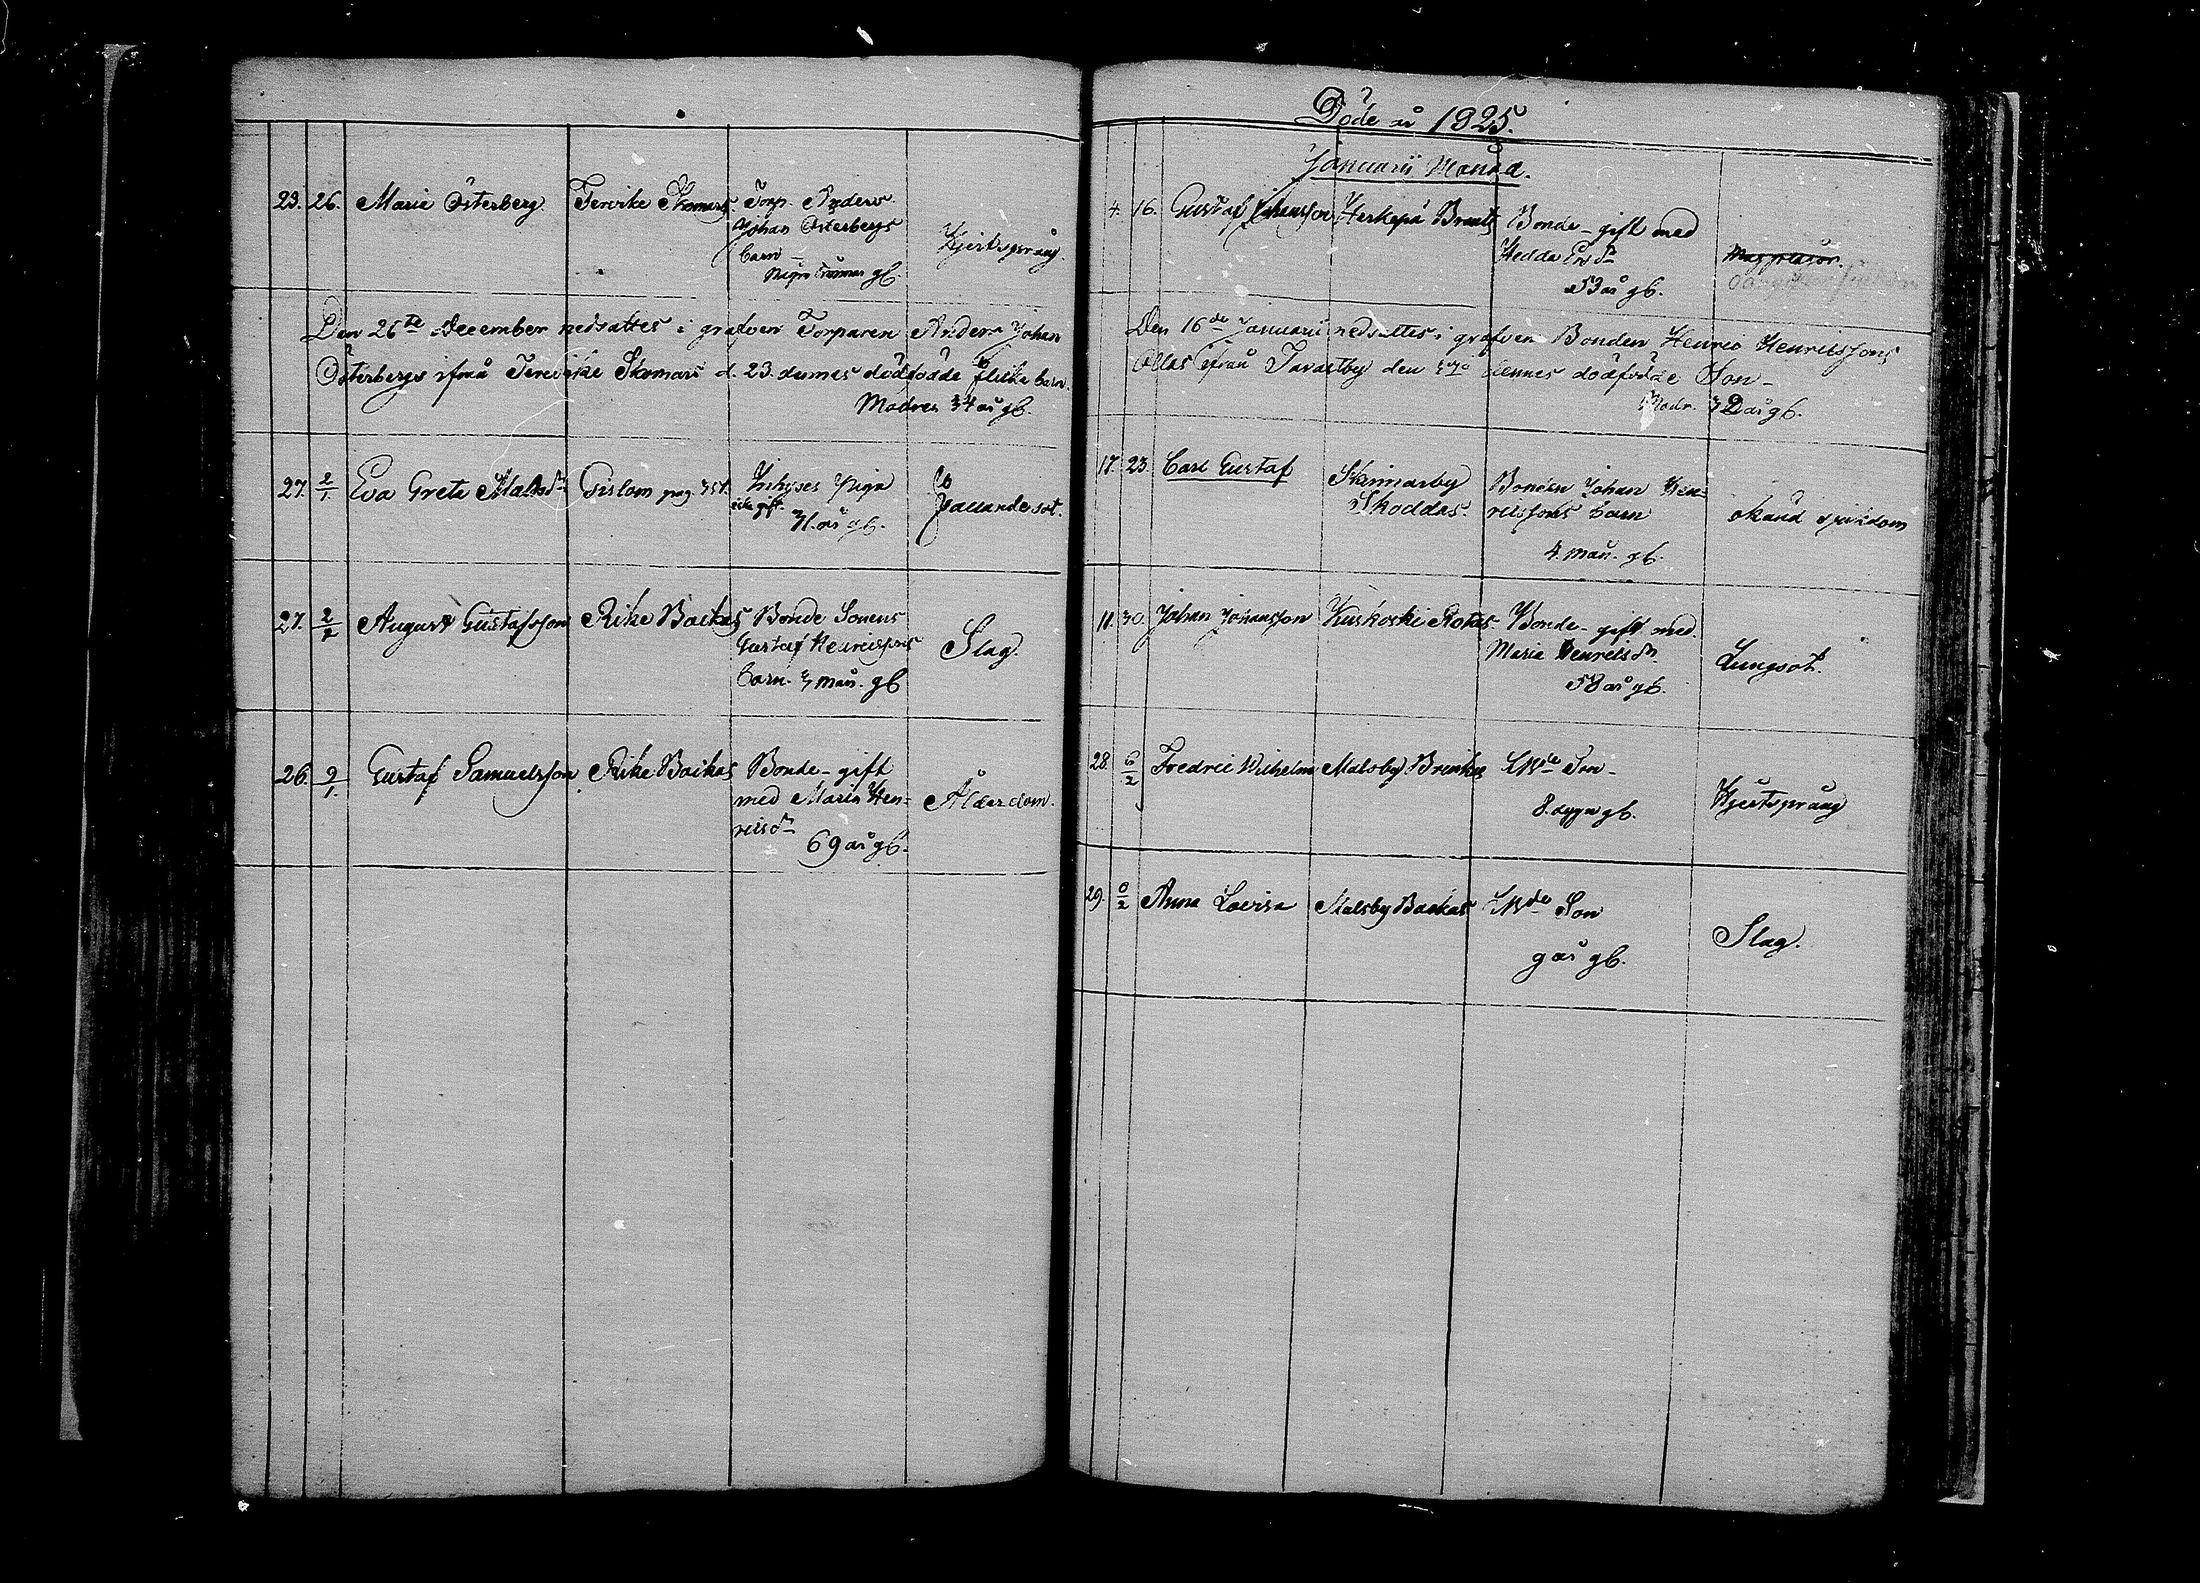 23. 26. Maria Österberg. Tervike Skomars Torp. Anders
Johan Österbergs
barn
några timmar gl.
Hjertsprång.
Den 26te December nedsattes i grafven Torparen Anders Johan
Österbergs ifrån Tervike Skomars d. 23. dennes dödfödde flicke barn.
Modren 34 år gl.
27. 2/1. Eva Greta Matsdr Gislom pag. 351. Inhyses Piga
icke gift. 31. år gl.
Fallandesot.
27. 2/2 August Gustafsson Rike Backas Bonde Sonens
Gustaf Henricssons
barn. 3 mån. gl
Slag.
26. 9/1. Gustaf Samuelsson Rike Backas Bonde - gift
med Maria Hen=
ricsdr
69 år gl.
Ålderdom.
Döde år 1825.
Januarii Månad.
4. 16. Gustaf Johansson Herkepä Brants Bonde - gift med
Hedda
53 år gl.
Den 16de Januarii nedsattes i grafven Bonden Henric Henricssons
Ollas ifrån Tavastby den dennes dödfödde Son -
Modr. 32 år gl.
17. 23. Carl Gustaf Skinnarby
Skoddas.
Bonden Johan Hen=
ricssons barn
4. mån. gl.
okänd sjukdom
11. 30. Johan Johansson Kuskoski Rotas Bonde - gift med
Maria Henricsdr
58 år gl.
Lungsot.
28. 6/2 Fredric Wilhelm Malsby Brinkas Son -
8. dygn gl.
Hjertsprång
29. 6/2 Anna Lovisa Malsby Backas Son
9 år gl.
Slag.